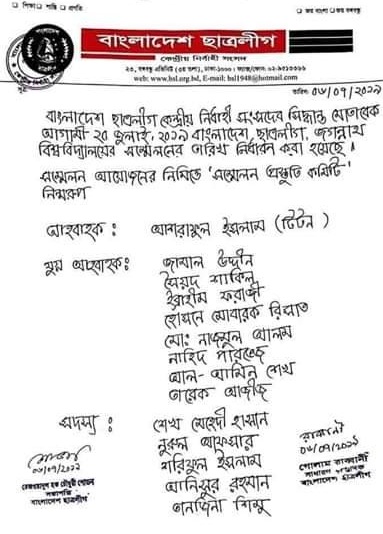 শিক্ষা শান্তি প্রগতি
জয় বাংলা জয় বঙ্গবন্ধু
বাংলাদেশ ছাত্রলীগ
কেন্দ্রীয় নির্বাহী সংসদ
২৩, বঙ্গবন্ধু এভিনিউ (৩য় তলা), ঢাকা-১০০০।
web: www.bsl.org.bd, E-mail: bsl1948@hotmail.com
সূত্র:
তারিখ: ০৮/০৭/২০১৯
বাংলাদেশ ছাত্রলীগ কেন্দ্রীয় নির্বাহী সংসদের সিদ্ধান্ত মোতাবেক
আগামী ২০ জুলাই, ২০১৯ বাংলাদেশ ছাত্রলীগ, জগন্নাথ
বিশ্ববিদ্যালয়ের সম্মেলনের তারিখ নির্ধারন করা হয়েছে।
সম্মেলন আয়োজনের নিমিত্তে 'সম্মেলন প্রস্তুতি কমিটি'
নিম্নরূপ
আহবায়ক : আশরাফুল ইসলাম (টিটন)
যুগ্ম আহবায়ক: জামাল উদ্দীন
সৈয়দ শাকিল
ইব্রাহীম ফরাজী
হোসনে মোবারক রিসাত
মো: নাজমুল আলম
নাহিদ পারভেজ
আল-আমিন শেখ
তারেক আজীজ
সদস্য : শেখ মেহেদী হাসান
নুরুল আফসার
শরিফুল ইসলাম
আনিসুর রহমান
তানজিনা শিমু
রেজওয়ানুল হক চৌধুরী শোভন
সভাপতি
বাংলাদেশ ছাত্রলীগ
রাব্বানী
০৮/০৭/২০১৯
গোলাম রাব্বানী
সাধারণ সম্পাদক
বাংলাদেশ ছাত্রলীগ